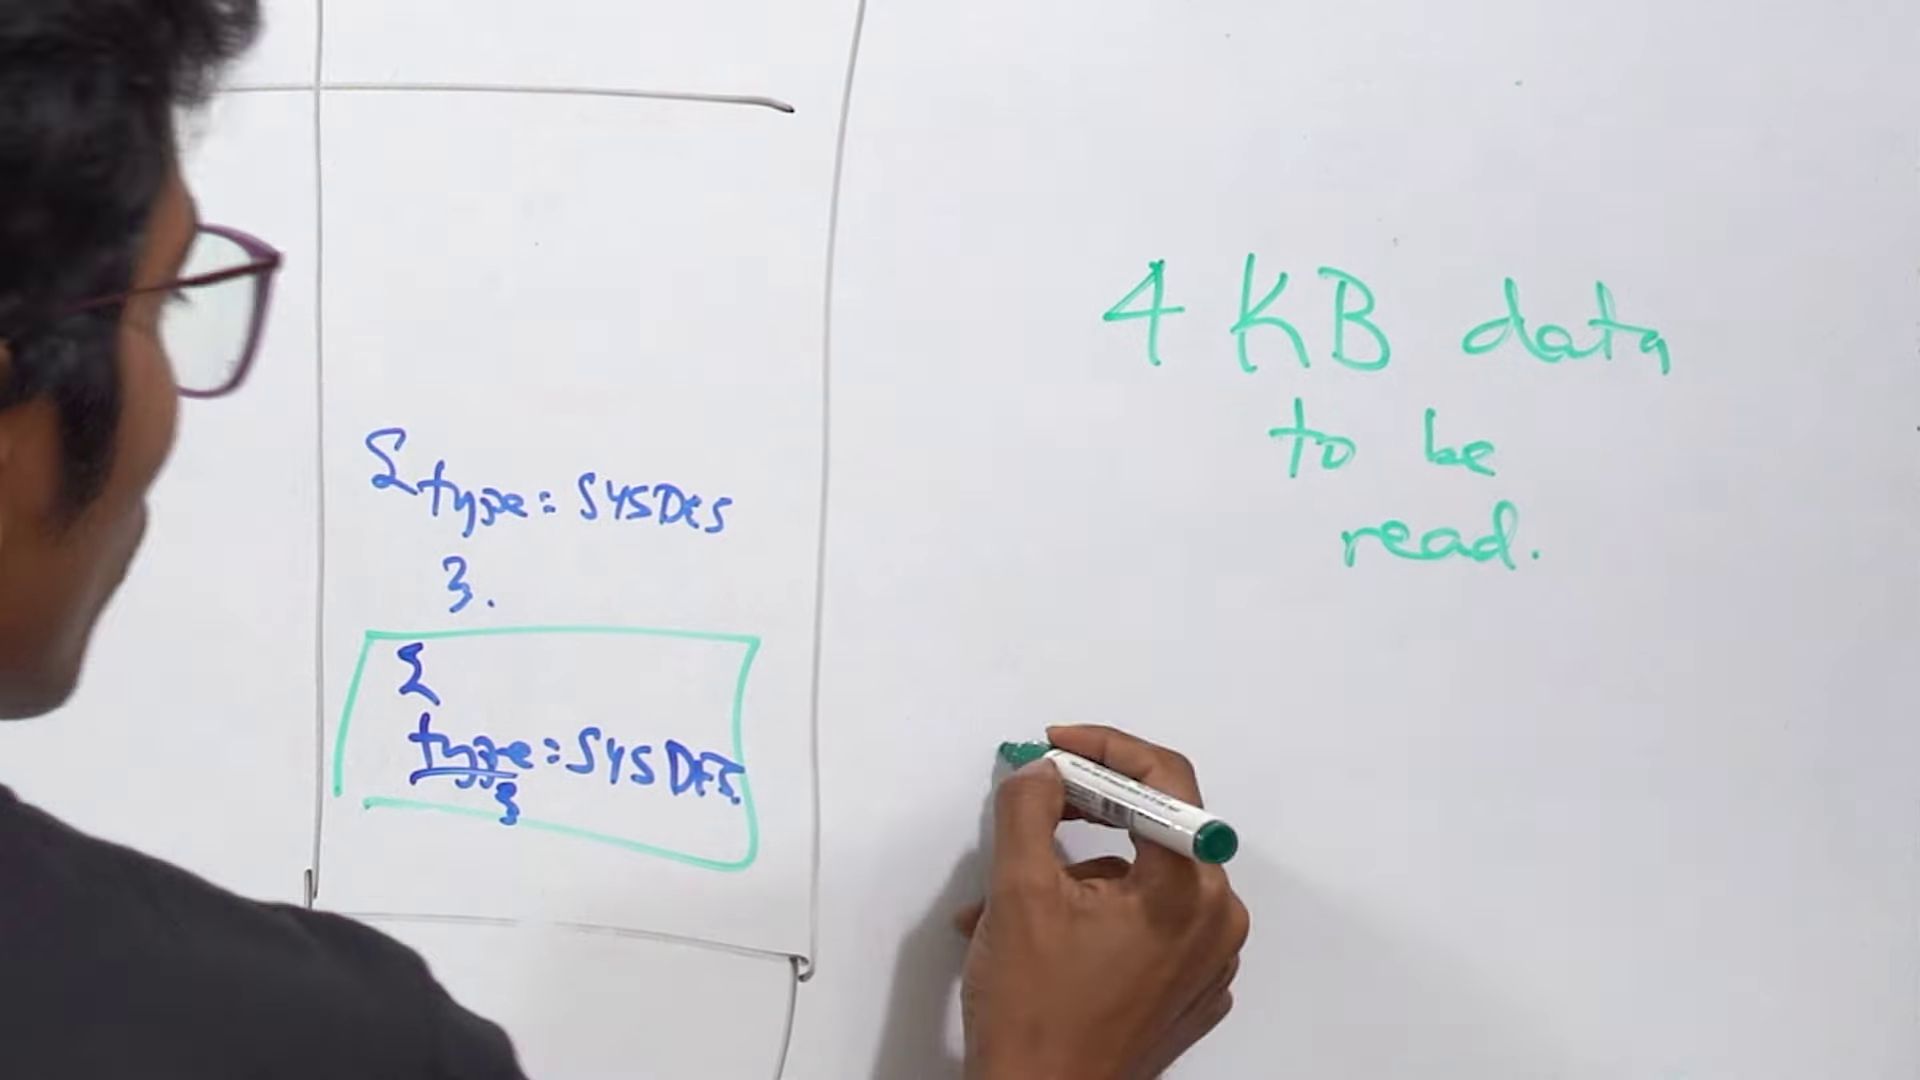 {type: SYSDES
}.
{
type: SYSDES
}
4 KB data
to be
read.